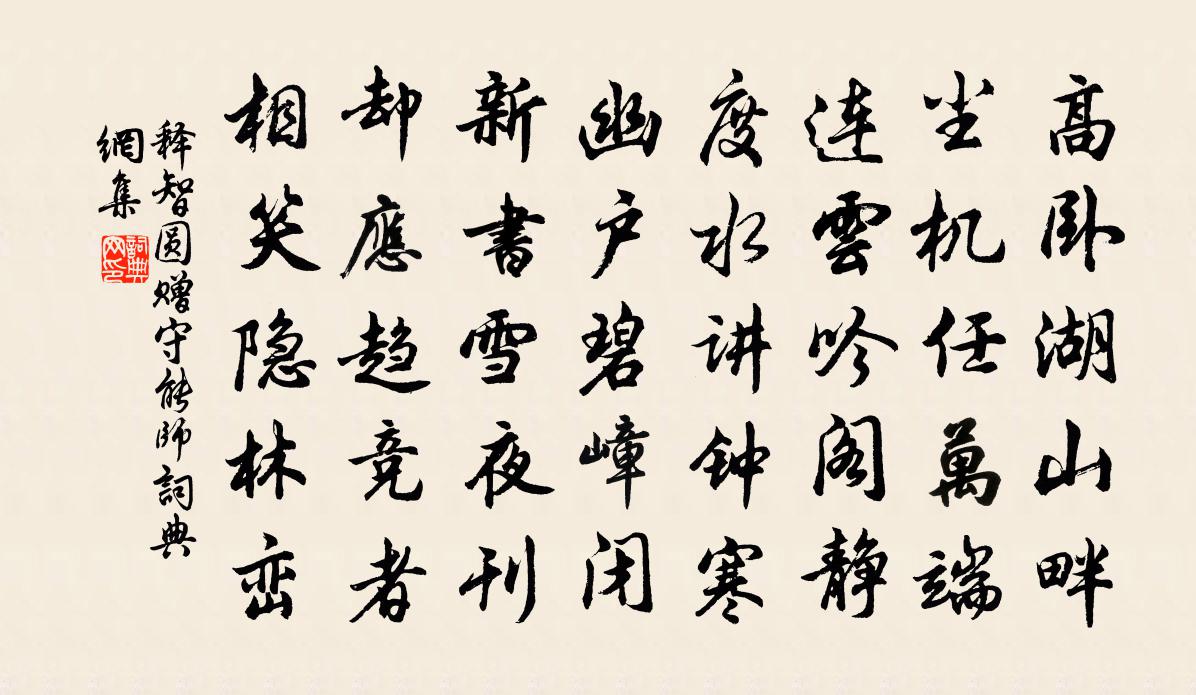 高卧湖山畔
尘机任萬端
連雲吟阁静
度水讲钟寒
幽户碧嶂闭
新書雪夜刊
却應趋竞者
相笑隐林峦
释智圆赠守能師詞典
網集
詞典网印